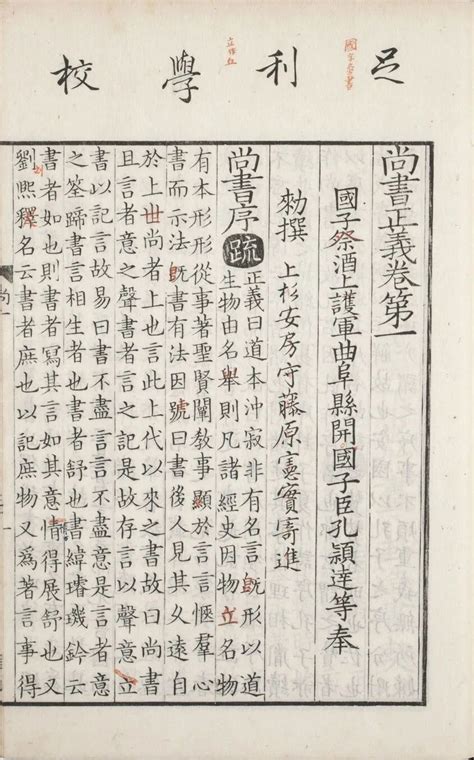 足利學校
尚書正義卷第一
國子祭酒上護軍曲阜縣開國子臣孔穎達等奉
勑撰 上杉安房守藤原憲實寄進
尚書序 疏 正義曰道本沖寂非有名言旣形以道
生物由名舉則凡諸經史因物立名物
有本形形從事著聖賢闡敎事顯於言言愜羣心
書而示法旣書有法因號曰書後人見其久遠自
於上世尚者上也言此上代以來之書故曰尚書
且言者意之聲書者言之記是故存言以聲意立
書以記言故易曰書不盡言言不盡意是言者意
之筌蹄書言相生者也書者舒也書緯璿璣鈐云
書者如也則書者寫其言如其意情得展舒也又
劉熙釋名云書者庶也以記庶物又爲著言事得
尚一